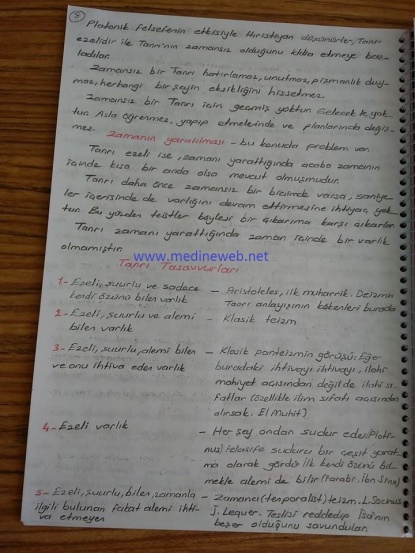 8
Platonik felsefenin etkisiyle Hıristiyan düşünürler, Tanrı
ezelidir ile Tanrı'nın zamansız olduğunu iddia etmeye baş-
ladılar.
Zamansız bir Tanrı hatırlamaz, unutmaz, pişmanlık duy-
maz, herhangi bir şeyin eksikliğini hissetmez.
Zamansız bir Tanrı için geçmiş yoktur. Gelecek te yok-
tur. Asla öğrenmez, yapıp etmelerinde ve planlarında değiş-
mez.
Zamanın yaratılması - bu konuda problem var.
Tanrı ezeli ise, zamanı yarattığında acaba zamanın
içinde kısa bir anda olsa mevcut olmuşmudur.
Tanrı daha önce zamansız bir biçimde varsa, saniye-
ler içerisinde de varlığını devam ettirmesine ihtiyaç yok-
tur. Bu yüzden teistler böylesi bir çıkarıma karşı çıkarlar.
Tanrı zamanı yarattığında zaman içinde bir varlık
olmamıştır.
www.medineweb.net
Tanrı Tasavvurları
1- Ezeli, şuurlu ve sadece - Aristoteles, ilk muharrik. Deizmin
kendi özünü bilen varlık Tanrı anlayışının kökenleri burada
2- Ezeli, şuurlu ve alemi - Klasik teizm
bilen varlık
3- Ezeli, şuurlu, alemi bilen - Klasik panteizmin görüşü: Eğer
ve onu ihtiva eden varlık buradaki ihtivayı ihtivayı, ilahi
mahiyet açısından değil de ilahi sı-
fatlar (özellikle ilim sıfatı açısından
alırsak. El Muhit)
4- Ezeli varlık - Her şey ondan sudur eder (Ploti-
nus) felasife suduru bir çeşit yarat-
ma olarak gördü. ilk kendi özünü bil-
mekle alemi de bilir (Farabi, İbn Sina)
5- Ezeli, şuurlu, bilen, zamanla - Zamancı (temporalist) teizm. L. Socinus
ilgili bulunan fakat alemi ihti- J. Lequer. Teslisi reddedip İsa'nın
va etmeyen beşer olduğunu savundular.